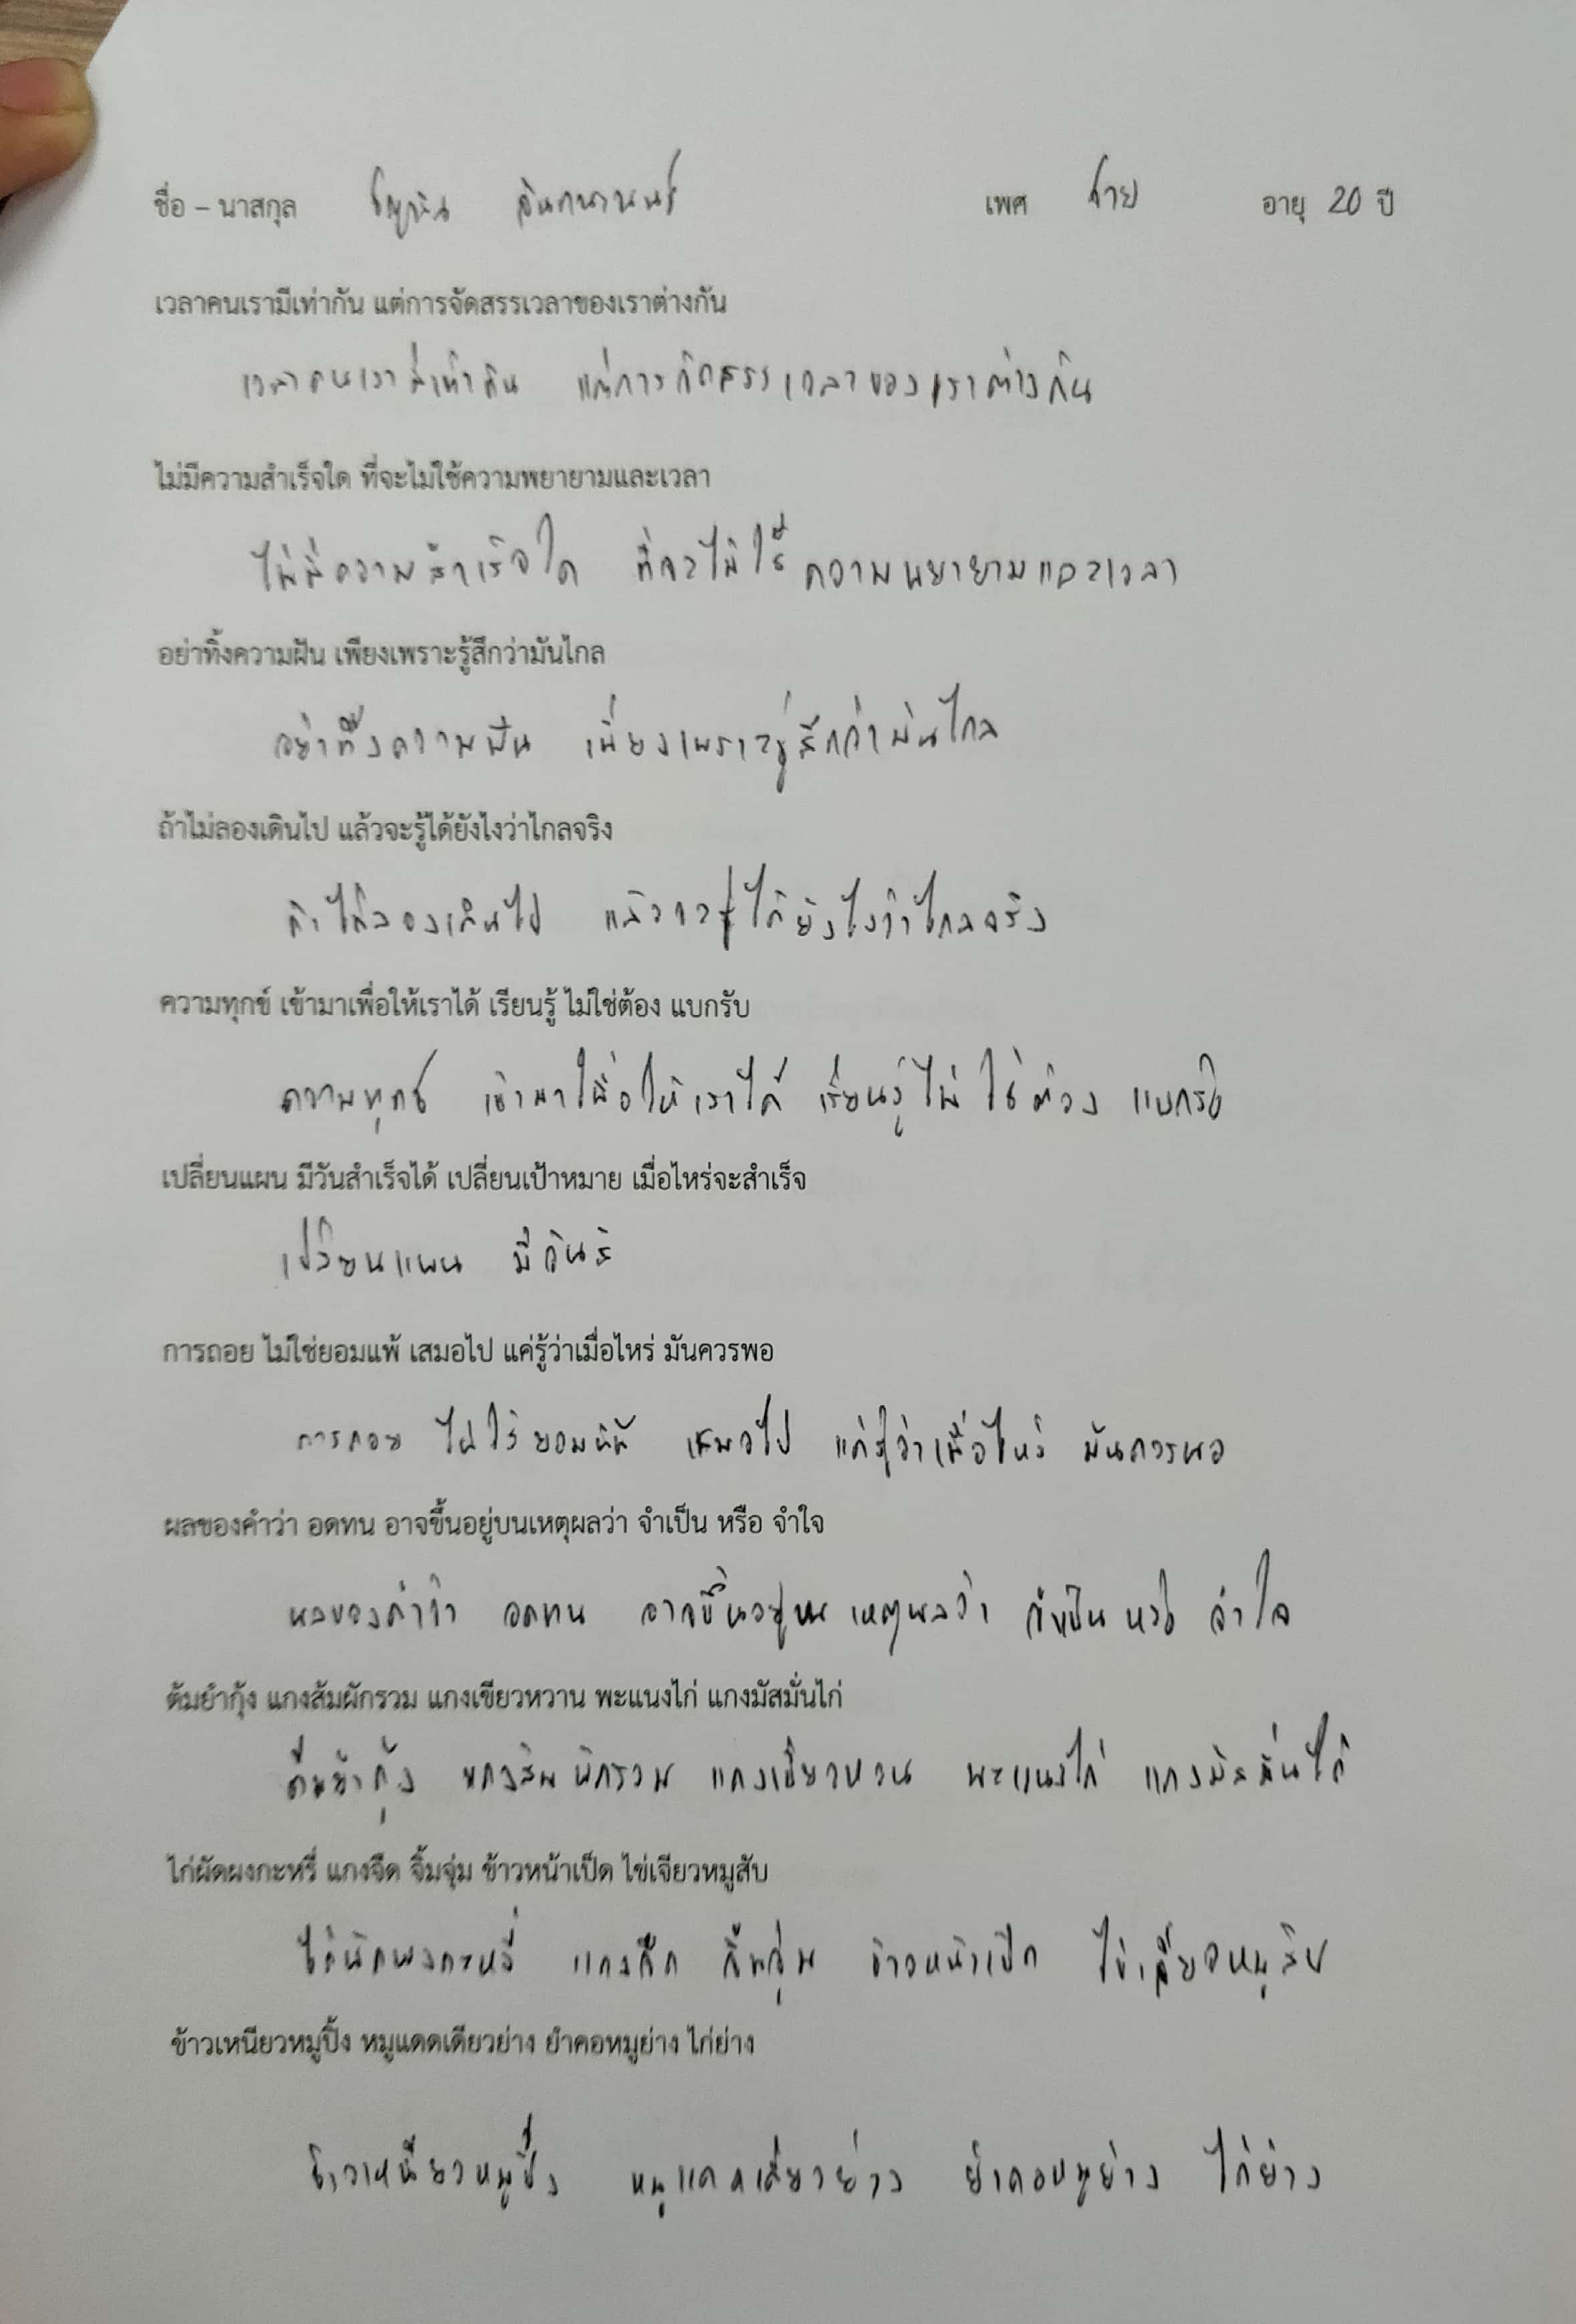 ชื่อ – นาสกุล เพศ ชาย อายุ 20 ปี
เวลาคนเรามีเท่ากัน แต่การจัดสรรเวลาของเราต่างกัน
เวลาคนเรามีเท่ากัน แต่การจัดสรรเวลาของเราต่างกัน
ไม่มีความสำเร็จใด ที่จะไม่ใช้ความพยายามและเวลา
ไม่มีความสำเร็จใด ที่จะไม่ใช้ความพยายามและเวลา
อย่าทิ้งความฝัน เพียงเพราะรู้สึกว่ามันไกล
อย่าทิ้งความฝัน เพียงเพราะรู้สึกว่ามันไกล
ถ้าไม่ลองเดินไป แล้วจะรู้ได้ยังไงว่าไกลจริง
ถ้าไม่ลองเดินไป แล้วจะรู้ได้ยังไงว่าไกลจริง
ความทุกข์ เข้ามาเพื่อให้เราได้ เรียนรู้ ไม่ใช่ต้อง แบกรับ
ความทุกข์ เข้ามาเพื่อให้เราได้ เรียนรู้ ไม่ใช่ต้อง แบกรับ
เปลี่ยนแผน มีวันสำเร็จได้ เปลี่ยนเป้าหมาย เมื่อไหร่จะสำเร็จ
เปลี่ยนแผน มีวันสำ
การถอย ไม่ใช่ยอมแพ้ เสมอไป แค่รู้ว่าเมื่อไหร่ มันควรพอ
การถอย ไม่ใช่ยอมแพ้ เสมอไป แค่รู้ว่าเมื่อไหร่ มันควรพอ
ผลของคำว่า อดทน อาจขึ้นอยู่บนเหตุผลว่า จำเป็น หรือ จำใจ
ผลของคำว่า อดทน อาจขึ้นอยู่บนเหตุผลว่า จำเป็น หรือ จำใจ
ต้มยำกุ้ง แกงส้มผักรวม แกงเขียวหวาน พะแนงไก่ แกงมัสมั่นไก่
ต้มยำกุ้ง แกงส้มผักรวม แกงเขียวหวาน พะแนงไก่ แกงมัสมั่นไก่
ไก่ผัดผงกะหรี่ แกงจืด จิ้มจุ่ม ข้าวหน้าเป็ด ไข่เจียวหมูสับ
ไก่ผัดผงกะหรี่ แกงจืด จิ้มจุ่ม ข้าวหน้าเป็ด ไข่เจียวหมูสับ
ข้าวเหนียวหมูปิ้ง หมูแดดเดียวย่าง ยำคอหมูย่าง ไก่ย่าง
ข้าวเหนียวหมูปิ้ง หมูแดดเดียวย่าง ยำคอหมูย่าง ไก่ย่าง